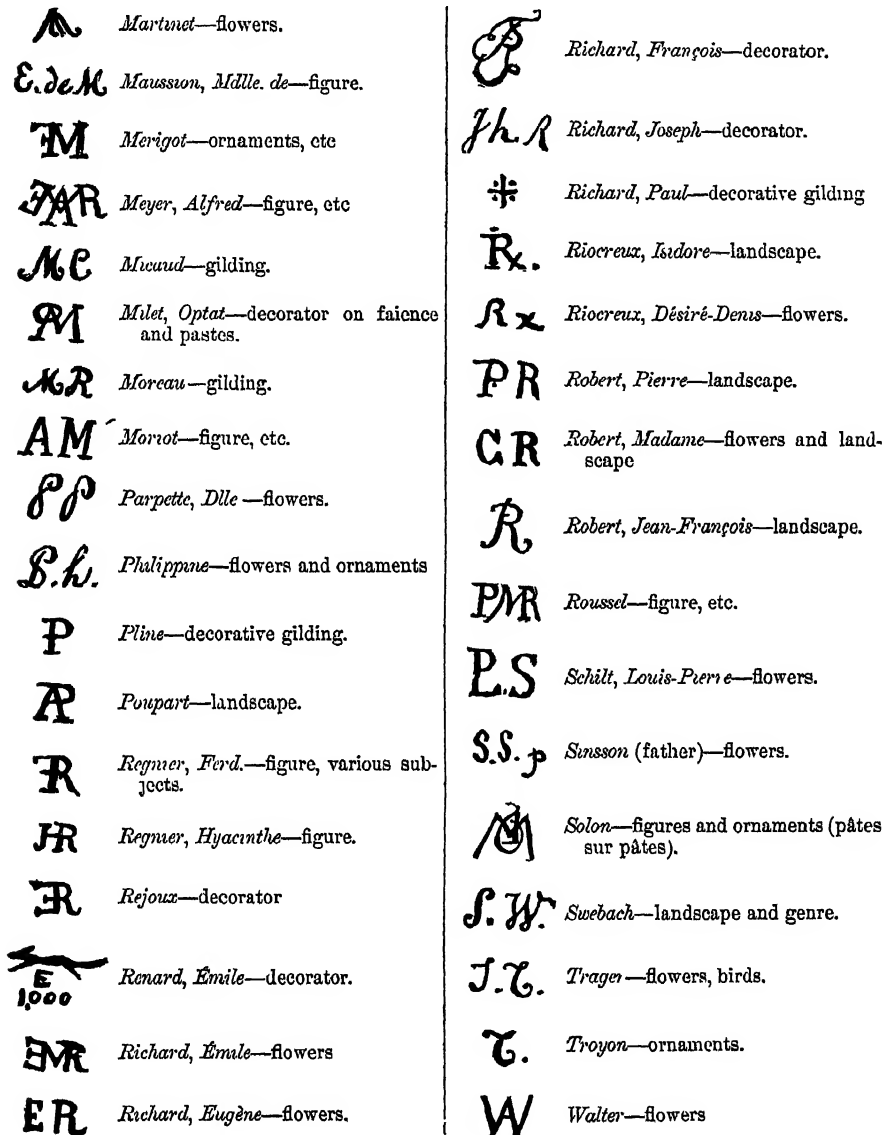 Martinet—flowers.
E. de M Maussion, Mdlle. de—figure.
M Merigot—ornaments, etc
AR Meyer, Alfred—figure, etc
M C Micaud—gilding.
M Milet, Optat—decorator on faience
and pastes.
M R Moreau—gilding.
AM Moriot—figure, etc.
P P Parpette, Dlle—flowers.
P.h. Philippine—flowers and ornaments
P Pline—decorative gilding.
AP Poupart—landscape.
R Regnier, Ferd.—figure, various sub-
jects.
HR Regnier, Hyacinthe—figure.
R Rejoux—decorator
E
1,000 Renard, Émile—decorator.
EMR Richard, Émile—flowers
E R Richard, Eugène—flowers.
Richard, François—decorator.
Jh. R Richard, Joseph—decorator.
Richard, Paul—decorative gilding
Rx. Riocreux, Isidore—landscape.
R x Riocreux, Désiré-Denis—flowers.
P R Robert, Pierre—landscape.
C R Robert, Madame—flowers and land-
scape
R Robert, Jean-François—landscape.
PMR Roussel—figure, etc.
P.S Schilt, Louis-Pierre—flowers.
S.S. p Sinsson (father)—flowers.
Solon—figures and ornaments (pâtes
sur pâtes).
S. W. Swebach—landscape and genre.
J.T. Trager—flowers, birds.
T. Troyon—ornaments.
W Walter—flowers